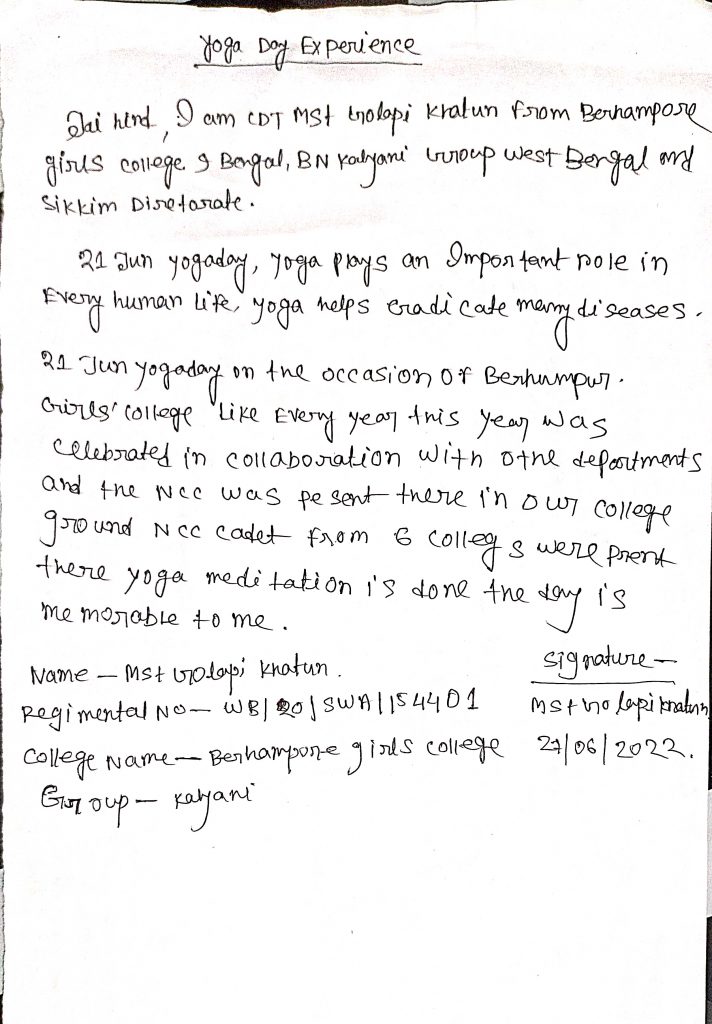 Yoga Day Experience
Jai hind, I am CDT MST Golapi Khatun from Berhampore
girls college 9 Bengal, BN Kalyani Group West Bengal and
Sikkim Diretorate.
21 Jun yogaday, yoga plays an Important role in
Every human life, yoga helps eradicate many diseases.
21 Jun yogaday on the occasion of Berhumpur.
Girls' college like Every year this year was
celebrated in collaboration with othe departments
and the Ncc was pesent there in our college
ground Ncc cadet from 6 collegs were prent
there yoga meditation is done the day is
memorable to me.
Name - Mst Golapi Khatun.
Signature -
Regimental No - WB/20/SWA/154401
Mst Golapi Khatun
College Name - Berhampore girls college
27/06/2022.
Group - Kalyani